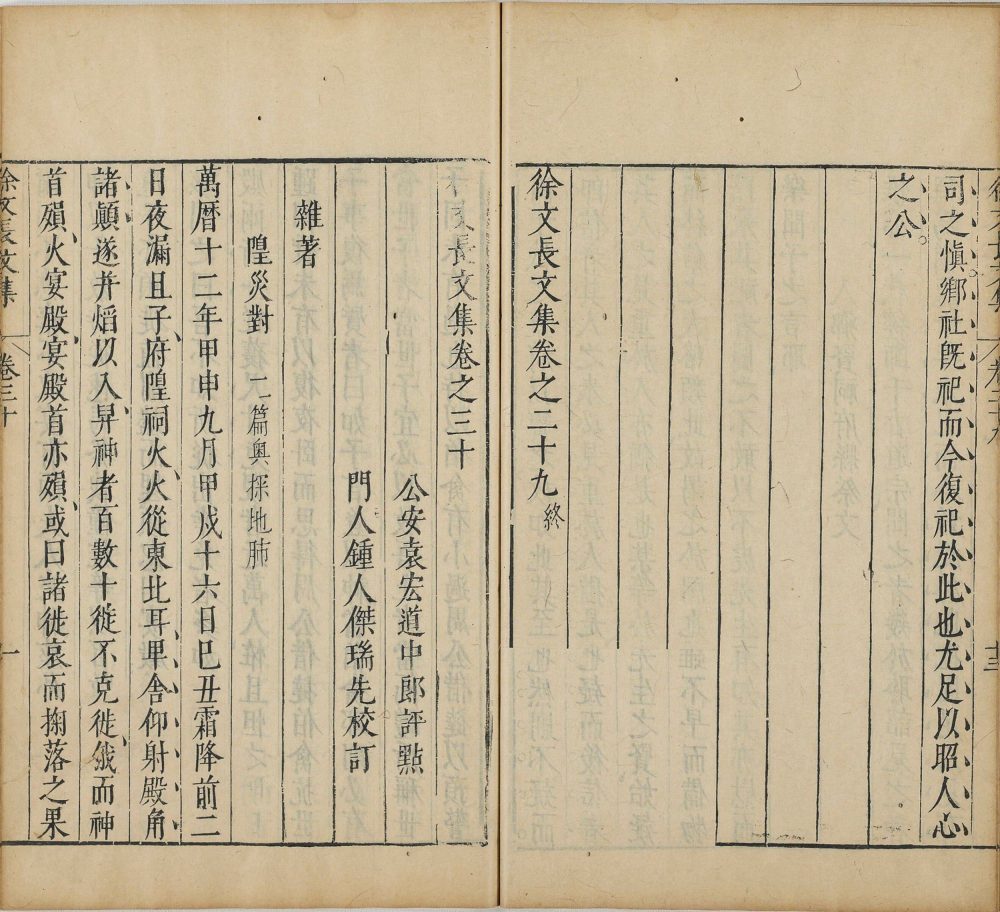 司之愼鄉社旣祀而今復祀於此也尤足以昭人心
之公。
徐文長文集卷之二十九終
長文集卷之三十
公安袁宏道中郎評點
門人鍾人傑瑞先校訂
雜著
隍災對 二篇奥探地肺
萬曆十二年甲申九月甲戌十六日己丑霜降前二
日夜漏且子府隍祠火火從東北耳卑舍仰射殿角
諸顛遂并熖以入昇神者百數十徙不克徙俄而神
首殞火宴殿宴殿首亦殞或曰諸徙哀而掬落之果
徐文長文集 卷三十 一